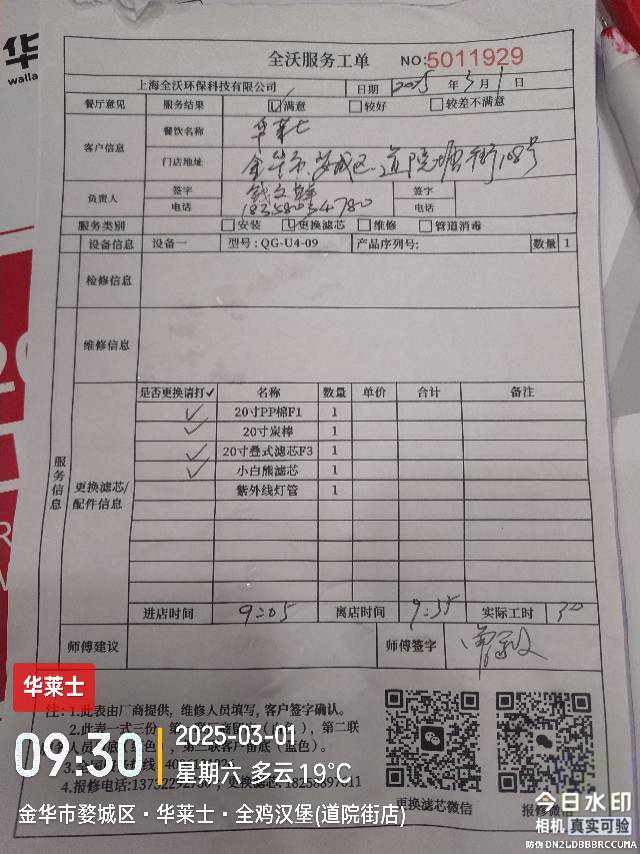 华
walla
全沃服务工单 NO:5011929
上海全沃环保科技有限公司 日期 2025 年 3 月 1 日
餐厅意见 服务结果 ☑满意 □较好 □较差不满意
客户信息 餐饮名称 华莱士
门店地址 金华市婺城区道院塘街108号
负责人 签字 签字
电话 电话
服务类别 □安装 ☑更换滤芯 □维修 □管道消毒
设备信息 设备一 型号:QG-U4-09 产品序列号: 数量 1
检修信息
维修信息
服务信息
更换滤芯/配件信息
是否更换请打✓ 名称 数量 单价 合计 备注
✓ 20寸PP棉F1 1
✓ 20寸炭棒 1
✓ 20寸叠式滤芯F3 1
✓ 小白熊滤芯 1
紫外线灯管 1
进店时间 9:05 离店时间 9:35 实际工时 30
师傅建议 师傅签字
注:1.此表由厂商提供,维修人员填写,客户签字确认。
2.此表一式三份,第一联
第二联
更换滤芯微信 报修微信
华莱士
09:30
2025-03-01
星期六 多云 19°C
金华市婺城区·华莱士·全鸡汉堡(道院街店)
今日水印
相机 真实可验
防伪 DN2LDBBBRCCUMA